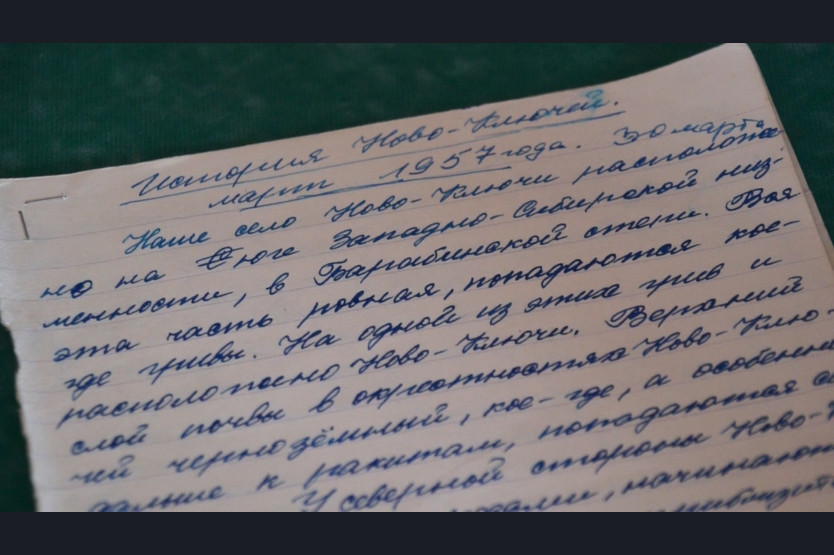 История Ново-Ключей.
март 1957 года. 30 марта
Наше село Ново-Ключи расположе
но на юге Западно-Сибирской низ-
менности, в Барабинской степи. Вся
эта часть ровная, попадаются кое-
где гривы. На одной из этих грив и
расположено Ново-Ключи. Верхний
слой почвы в окрестностях Ново-Клю-
чей чернозёмный, кое-где, а особенно
дальше к ракитам, попадаются
У северной стороны Ново-
начинают